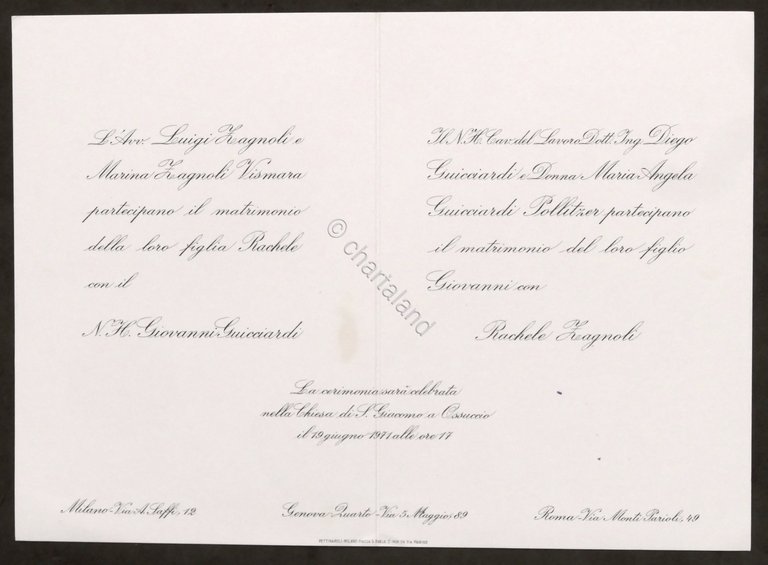 L'Avv. Luigi Zagnoli e
Marina Zagnoli Vismara
partecipano il matrimonio
della loro figlia Rachele
con il
N. H. Giovanni Guicciardi
Il N. H. Cav. del Lavoro Dott. Ing. Diego
Guicciardi e Donna Maria Angela
Guicciardi Pollitzer partecipano
il matrimonio del loro figlio
Giovanni con
Rachele Zagnoli
© chartaland
La cerimonia sarà celebrata
nella Chiesa di S. Giacomo a Ossuccio
il 19 giugno 1971 alle ore 17
Milano - Via A. Saffi, 12
Genova Quarto - Via 5 Maggio, 89
Roma - Via Monti Parioli, 49
PETTINAROLI - MILANO